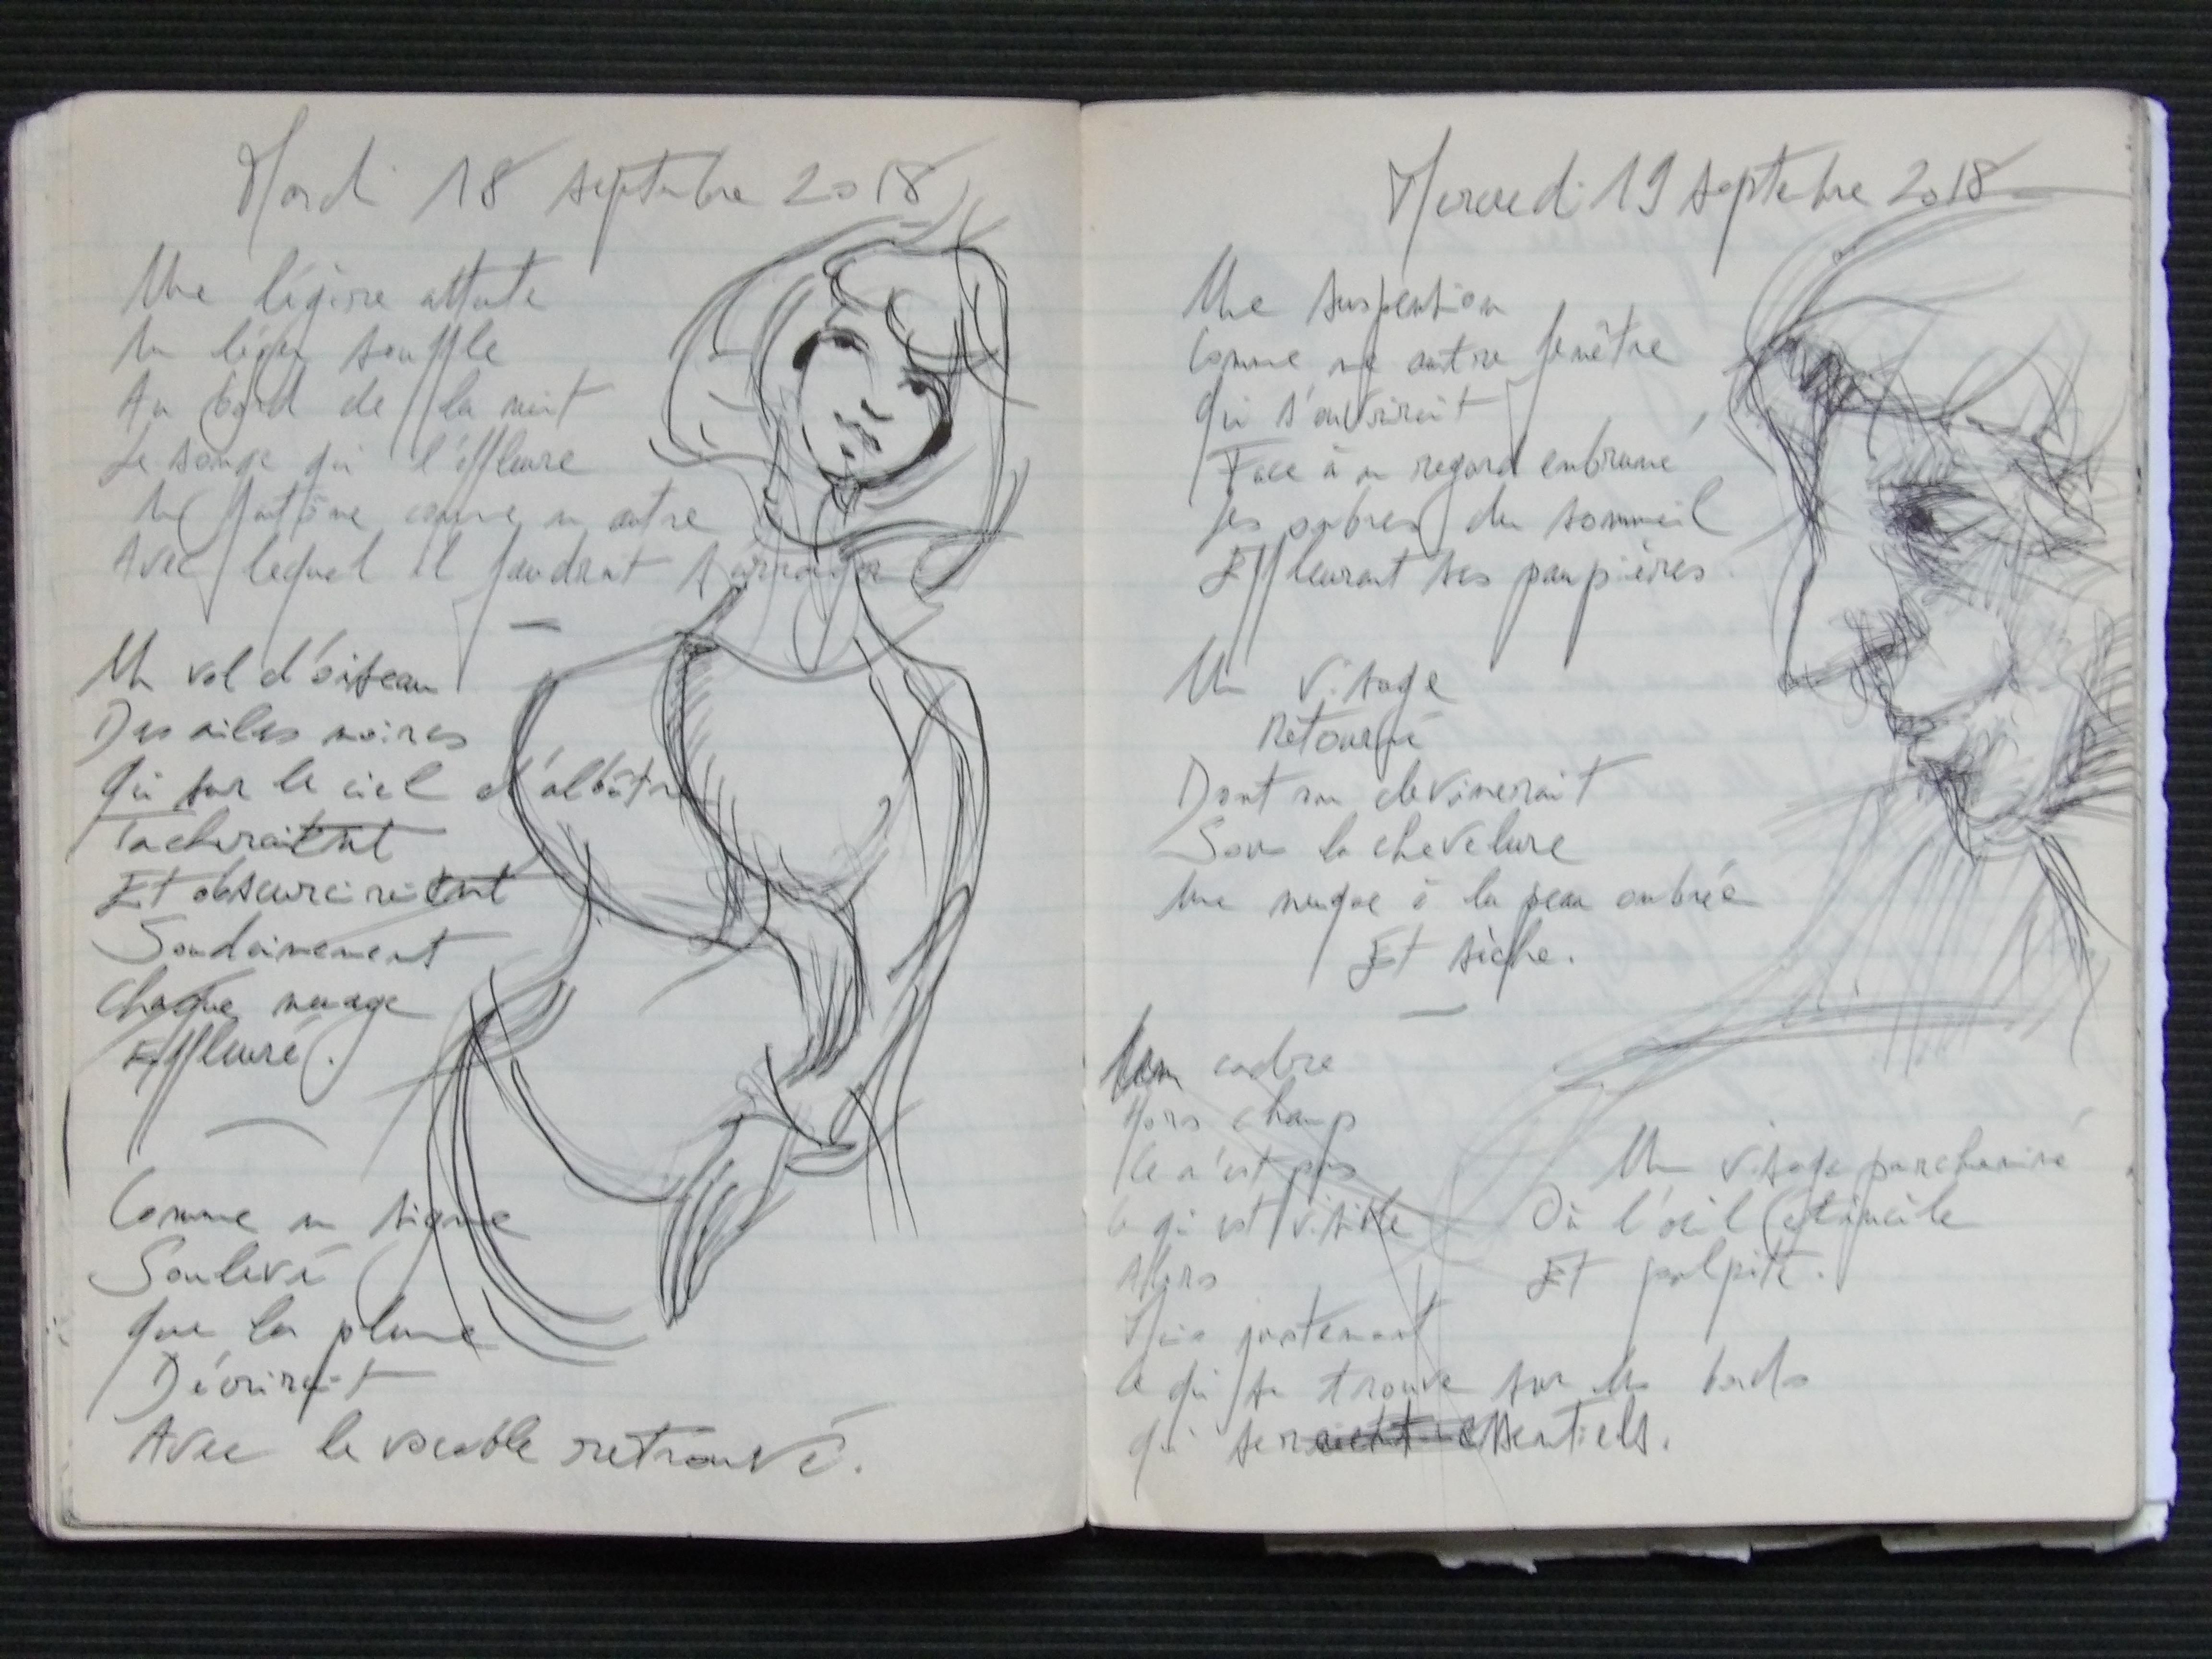 Mardi 18 septembre 2018
Une légère attente
Un léger souffle
Au bord de la nuit
Le songe qui l'effleure
Un fantôme comme un autre
Avec lequel il faudrait s'arranger
Un vol d'oiseau
Des ailes noires
Qui sur le ciel d'albâtre
Tacheraient
Et obscurciraient
Soudainement
Chaque nuage
Effleuré.
Comme un signe
Soulevé
Que la plume
Décrirait
Avec le vocable retrouvé.
Mercredi 19 septembre 2018
Une suspension
Comme une autre fenêtre
Qui s'ouvrirait
Face à un regard embrumé
Les ombres du sommeil
Effleurant ses paupières.
Un visage
Retourné
Dont on devinerait
Sous la chevelure
Une nuque à la peau ombrée
Et sèche.
cadre
Hors champ
Ce n'est pas
Ce qui est visible
Alors
Mais justement
Ce qui se trouve sur les bords
Qui essentiels.
Un visage parcheminé
Où l'œil étincèle
Et palpite.